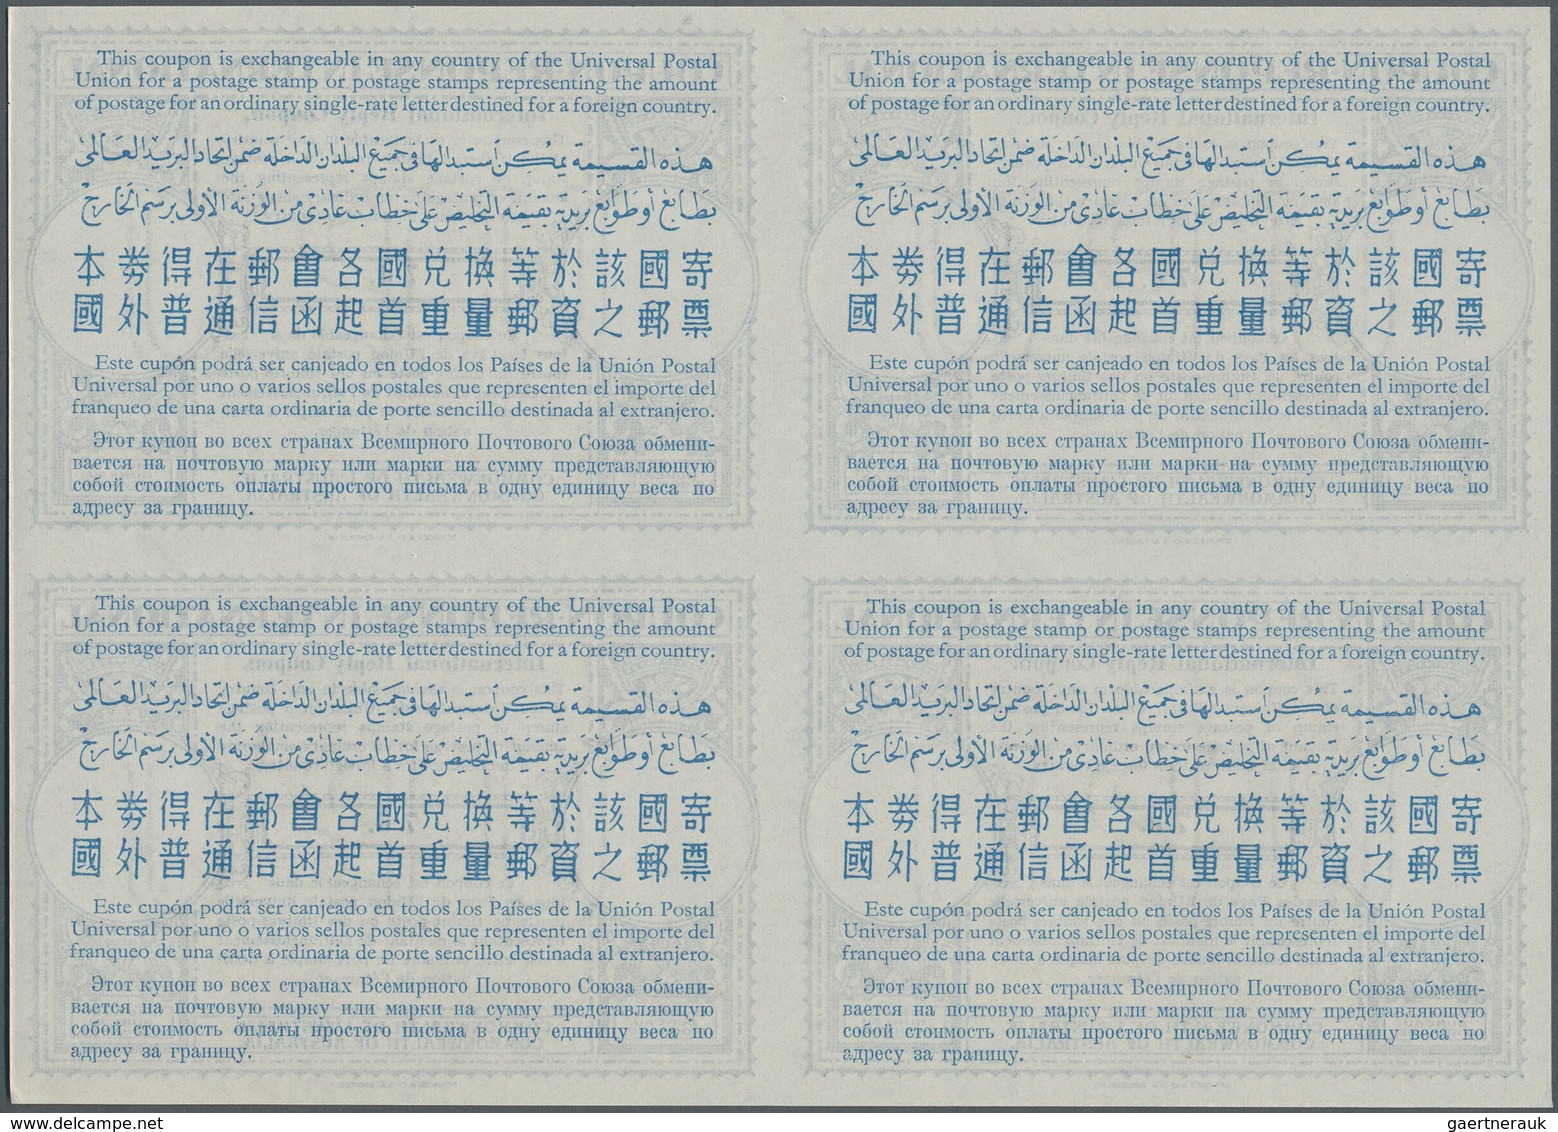 This coupon is exchangeable in any country of the Universal Postal
Union for a postage stamp or postage stamps representing the amount
of postage for an ordinary single-rate letter destined for a foreign country.
هذه القسيمة يمكن استبدالها في جميع البلدان الداخلة ضمن اتحاد البريد العالمى
بطابع أو طوابع بريدية بقيمة التخليص على خطاب عادى من الوزنة الأولى برسم الخارج
本券得在郵會各國兌換等於該國寄
國外普通信函起首重量郵資之郵票
Este cupón podrá ser canjeado en todos los Países de la Unión Postal
Universal por uno o varios sellos postales que representen el importe del
franqueo de una carta ordinaria de porte sencillo destinada al extranjero.
Этот купон во всех странах Всемирного Почтового Союза обмени-
вается на почтовую марку или марки на сумму представляющую
собой стоимость оплаты простого письма в одну единицу веса по
адресу за границу.
This coupon is exchangeable in any country of the Universal Postal
Union for a postage stamp or postage stamps representing the amount
of postage for an ordinary single-rate letter destined for a foreign country.
هذه القسيمة يمكن استبدالها في جميع البلدان الداخلة ضمن اتحاد البريد العالمى
بطابع أو طوابع بريدية بقيمة التخليص على خطاب عادى من الوزنة الأولى برسم الخارج
本券得在郵會各國兌換等於該國寄
國外普通信函起首重量郵資之郵票
Este cupón podrá ser canjeado en todos los Países de la Unión Postal
Universal por uno o varios sellos postales que representen el importe del
franqueo de una carta ordinaria de porte sencillo destinada al extranjero.
Этот купон во всех странах Всемирного Почтового Союза обмени-
вается на почтовую марку или марки на сумму представляющую
собой стоимость оплаты простого письма в одну единицу веса по
адресу за границу.
This coupon is exchangeable in any country of the Universal Postal
Union for a postage stamp or postage stamps representing the amount
of postage for an ordinary single-rate letter destined for a foreign country.
هذه القسيمة يمكن استبدالها في جميع البلدان الداخلة ضمن اتحاد البريد العالمى
بطابع أو طوابع بريدية بقيمة التخليص على خطاب عادى من الوزنة الأولى برسم الخارج
本券得在郵會各國兌換等於該國寄
國外普通信函起首重量郵資之郵票
Este cupón podrá ser canjeado en todos los Países de la Unión Postal
Universal por uno o varios sellos postales que representen el importe del
franqueo de una carta ordinaria de porte sencillo destinada al extranjero.
Этот купон во всех странах Всемирного Почтового Союза обмени-
вается на почтовую марку или марки на сумму представляющую
собой стоимость оплаты простого письма в одну единицу веса по
адресу за границу.
This coupon is exchangeable in any country of the Universal Postal
Union for a postage stamp or postage stamps representing the amount
of postage for an ordinary single-rate letter destined for a foreign country.
هذه القسيمة يمكن استبدالها في جميع البلدان الداخلة ضمن اتحاد البريد العالمى
بطابع أو طوابع بريدية بقيمة التخليص على خطاب عادى من الوزنة الأولى برسم الخارج
本券得在郵會各國兌換等於該國寄
國外普通信函起首重量郵資之郵票
Este cupón podrá ser canjeado en todos los Países de la Unión Postal
Universal por uno o varios sellos postales que representen el importe del
franqueo de una carta ordinaria de porte sencillo destinada al extranjero.
Этот купон во всех странах Всемирного Почтового Союза обмени-
вается на почтовую марку или марки на сумму представляющую
собой стоимость оплаты простого письма в одну единицу веса по
адресу за границу.
gaertnerauk